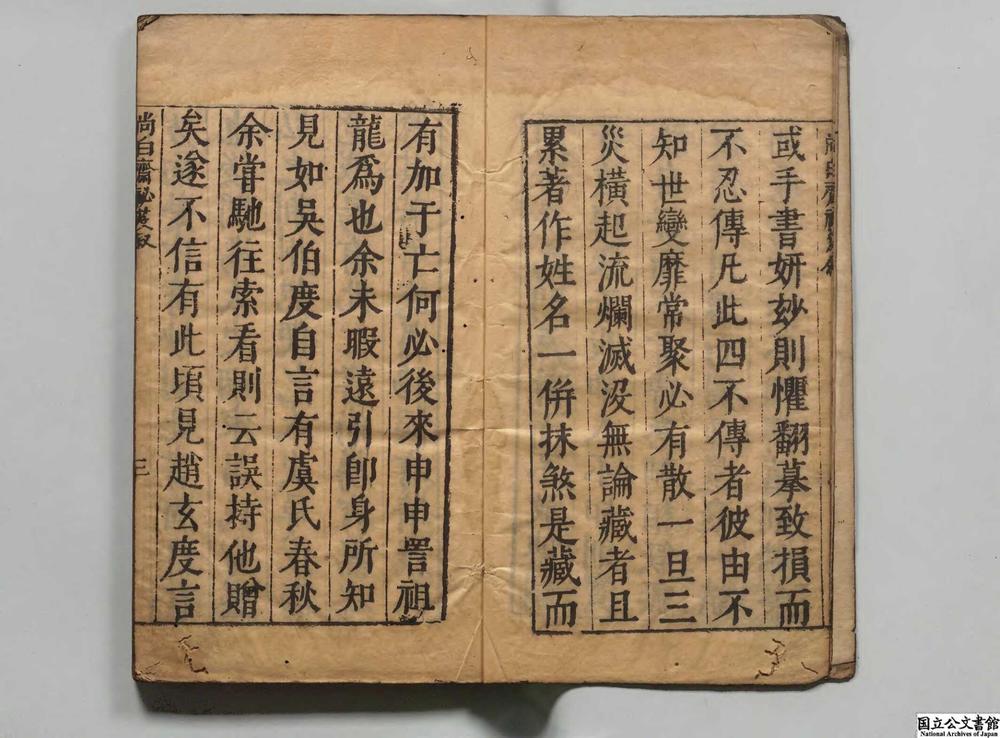 或手書妍玅則懼翻摹致損而
不忍傳凡此四不傳者彼由不
知世變靡常聚必有散一旦三
災橫起流爛滅沒無論藏者且
累著作姓名一併抹煞是藏而
有加于亡何必後來申申詈祖
龍爲也余未暇遠引卽身所知
見如吳伯度自言有虞氏春秋
余甞馳往索看則云誤持他贈
矣遂不信有此頃見趙玄度言
尚白齋祕笈叙
三
国立公文書館
National Archives of Japan